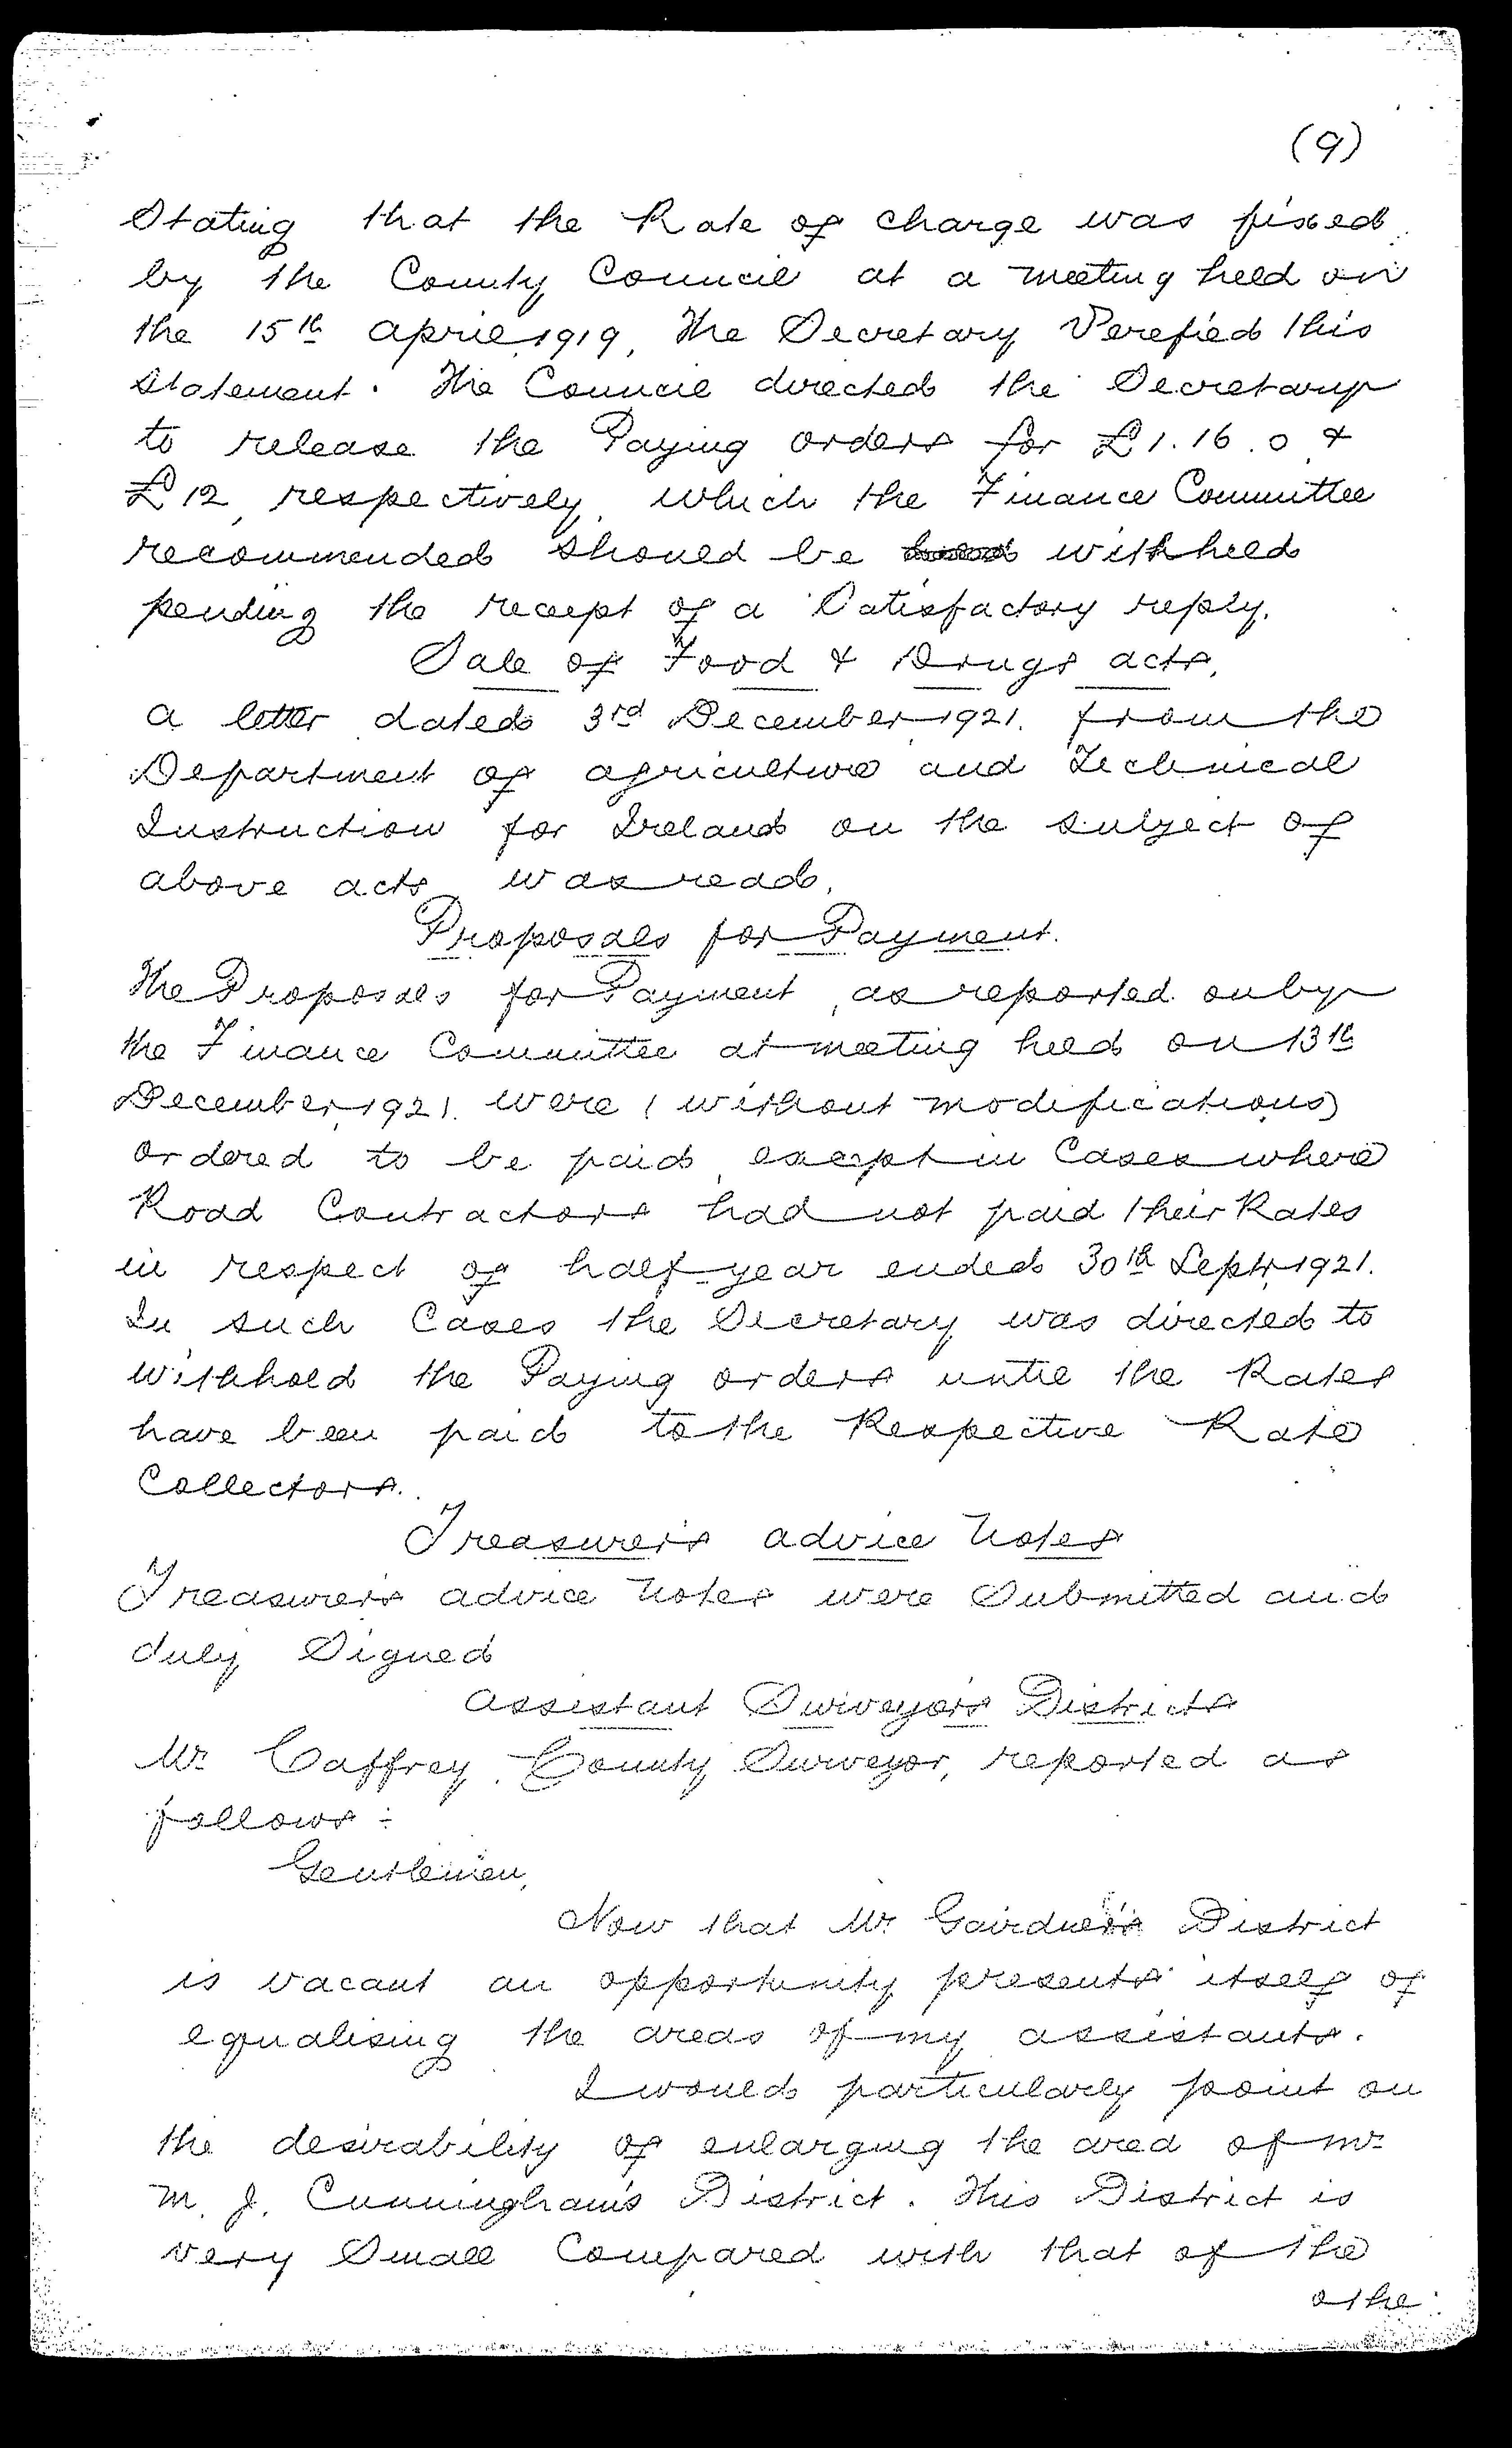 (9)
Stating that the Rate of charge was fixed
by the County Council at a meeting held on
the 15th april, 1919, The Secretary Verefied this
Statement. The Council directed the Secretary
to release the Paying orders for £1.16.0 &
£12, respectively, which the Finance Committee
recommended should be withheld
pending the receipt of a Satisfactory reply.
Sale of Food & Drugs acts.
a letter dated 3rd December, 1921. from the
Department of agriculture and Technical
Instruction for Ireland on the subject of
above acts was read.
Proposals for Payment.
The Proposals for Payment, as reported on by
the Finance Committee at meeting held on 13th
December, 1921. were (without modifications)
ordered to be paid, except in Cases where
Road Contractors had not paid their Rates
in respect of half-year ended 30th Septr, 1921.
In such Cases the Secretary was directed to
withhold the Paying orders until the Rates
have been paid to the Respective Rate
Collectors.
Treasurer's advice notes
Treasurer's advice notes were Submitted and
duly Signed
assistant Surveyor's Districts
Mr. Caffrey, County Surveyor, reported as
follows :-
Gentlemen,
Now that Mr. Gairdner's District
is vacant an opportunity presents itself of
equalising the areas of my assistants.
I would particularly point on
the desirability of enlarging the area of Mr.
M. J. Cunningham's District. This District is
very Small Compared with that of the
othe